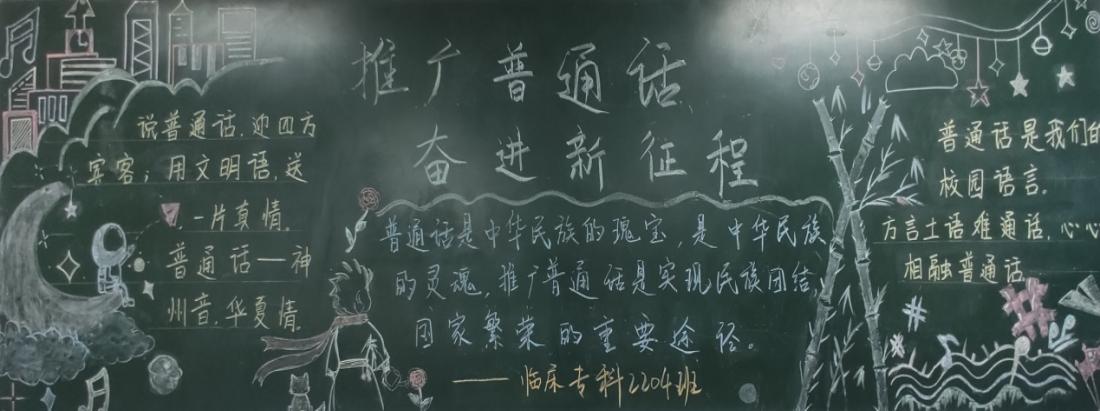 推广普通话
奋进新征程
说普通话,迎四方
宾客;用文明语,送
一片真情。
普通话—神
州音,华夏情。
普通话是中华民族的瑰宝,是中华民族
的灵魂,推广普通话是实现民族团结,
国家繁荣的重要途径。
——临床专科2204班
普通话是我们的
校园语言。
方言土语难通话,心心
相融普通话